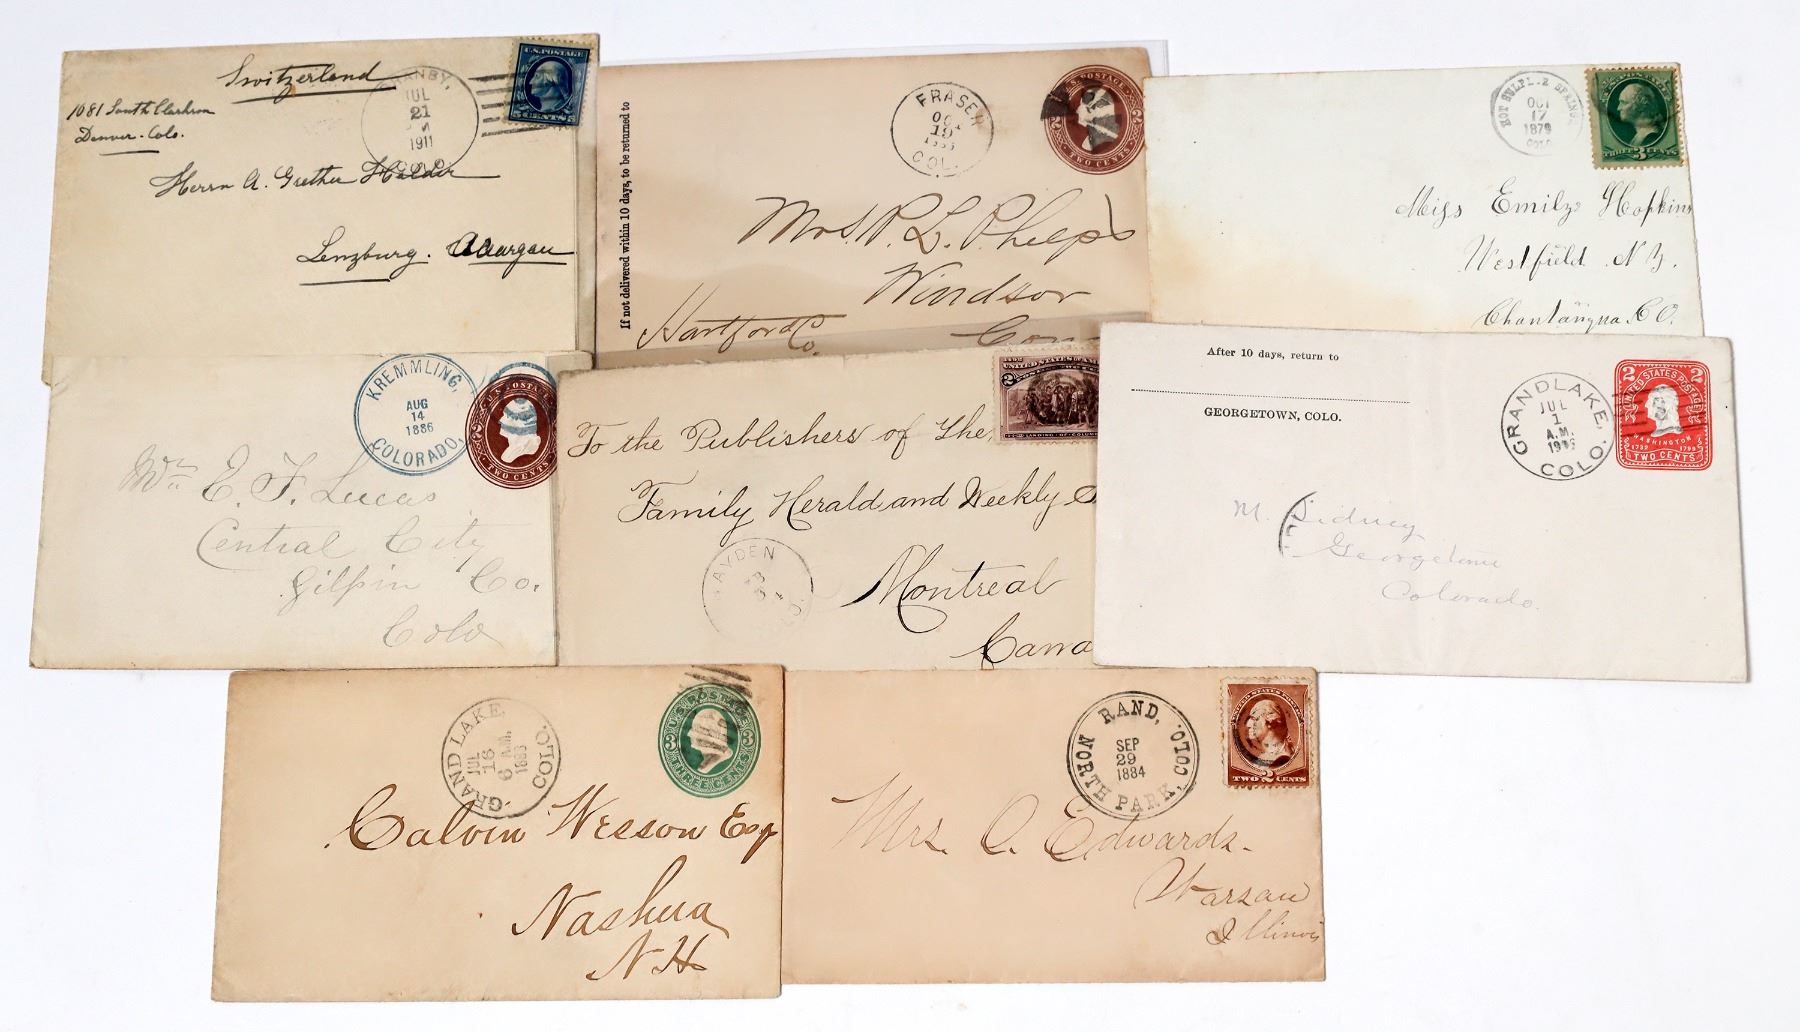 Switzerland
1081 South Clarkson
Denver. Colo.
JUL
21
1911
U.S. POSTAGE
5 CENTS 5
Herrn A. Grether Halder
Lenzburg. Aargau
If not delivered within 10 days, to be returned to
FRASER
19
COL.
U.S. POSTAGE
TWO CENTS
Mrs. R. L. Phelps
Windsor
Hartford Co.
HOT SULPHUR SPRINGS,
OCT
17
1879
COLO
THREE 3 CENTS
Miss Emily Hopkins
Westfield N.Y.
Chautauqua CO.
KREMMLING,
AUG
14
1886
COLORADO,
U.S. POSTAGE
TWO CENTS
E. F. Lucas
Central City
Gilpin Co.
Colo
1492
UNITED STATES OF AMERICA
2
LANDING OF COLUMBUS
To the Publishers of The
Family Herald and Weekly S
HAYDEN
COLO.
Montreal
Canada
After 10 days, return to
GEORGETOWN, COLO.
GRANDLAKE,
JUL
1
A.M.
COLO.
2 2
UNITED STATES POSTAGE
WASHINGTON
1732 1799
TWO CENTS
M. Sidney
Georgetown
Colorado.
GRAND LAKE,
JUL
16
6 A.M.
COLO.
U.S. POSTAGE
3 3
THREE CENTS
Calvin Wesson Esq
Nashua
N.H.
RAND,
SEP
29
1884
NORTH PARK, COLO.
UNITED STATES POSTAGE
TWO 2 CENTS
Mrs. C. Edwards.
Warsaw
Illinois